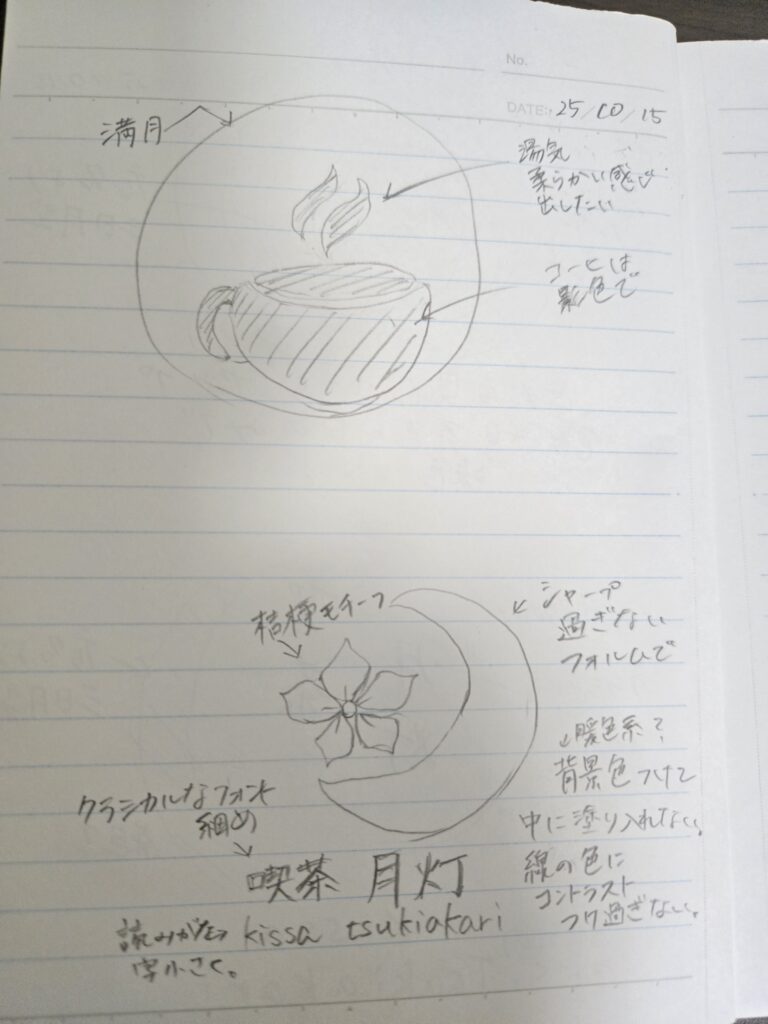 No.
DATE: 25/10/15
満月
湯気
柔らかい感じ
出したい
コーヒは
影色で
桔梗モチーフ
シャープ
過ぎない
フォルムで
クラシカルなフォント
細め
暖色系？
背景色つけて
中に塗り入れない。
線の色に
コントラスト
つけ過ぎない。
喫茶 月灯
読みがな
字小さく。
kissa tsukiakari